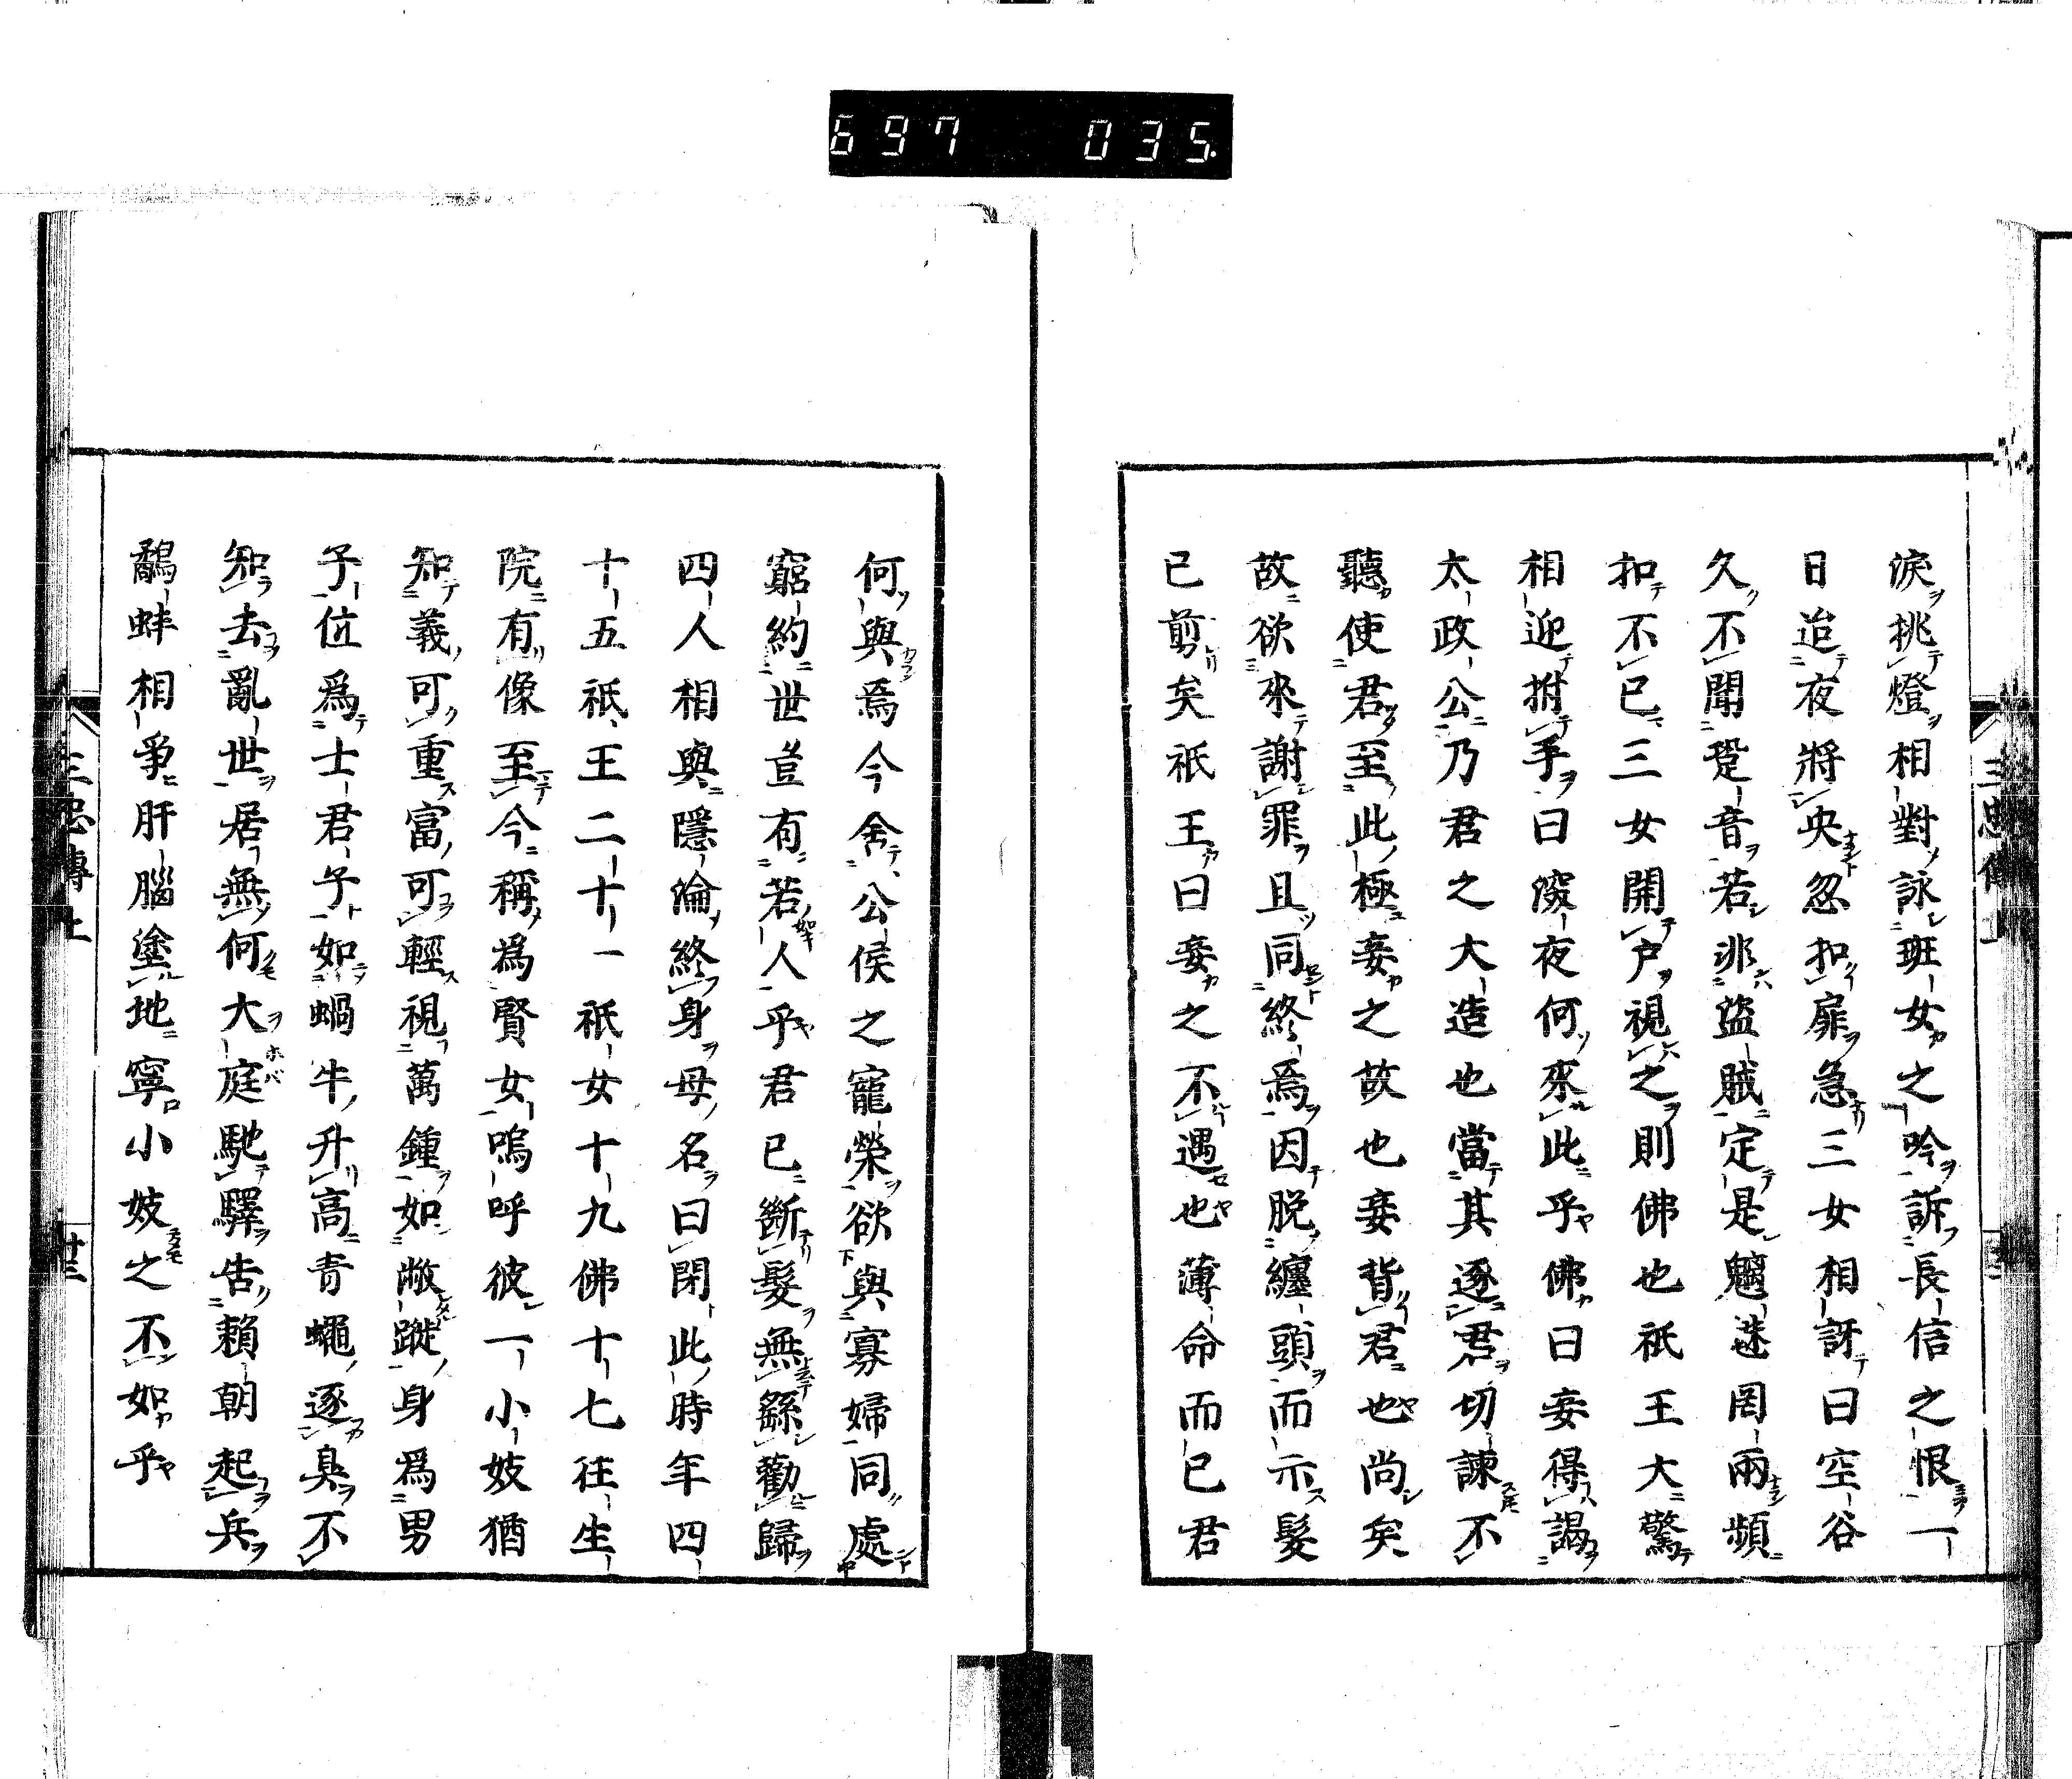 697 035
淚挑燈相對詠班女之吟訴長信之恨一
日迨夜將央忽扣扉急三女相訝曰空谷
久不聞跫音若非盜賊定是魑魅罔兩頻
扣不已三女開戶視之則佛也祇王大驚
相迎拊手曰深夜何來此乎佛曰妾得謁
太政公乃君之大造也當其逐君切諫不
聽使君至此極妾之故也妾背君也尚矣
故欲來謝罪且同終焉因脫纏頭而示髮
已剪矣祇王曰妾之不遇也薄命而已君
何與焉今舍公侯之寵榮欲與寡婦同處
窮約世豈有若人乎君已斷髮無繇勸歸
四人相與隱淪終身母名曰閉此時年四
十五祇王二十一祇女十九佛十七往生
院有像至今稱爲賢女嗚呼彼一小妓猶
知義可重富可輕視萬鍾如敝蹝身爲男
子位爲士君子如蝸牛升高青蠅逐臭不
知去亂世居無何大庭馳驛告賴朝起兵
鷸蚌相爭肝腦塗地寧小妓之不如乎
三忠傳上
廿三
三忠傳